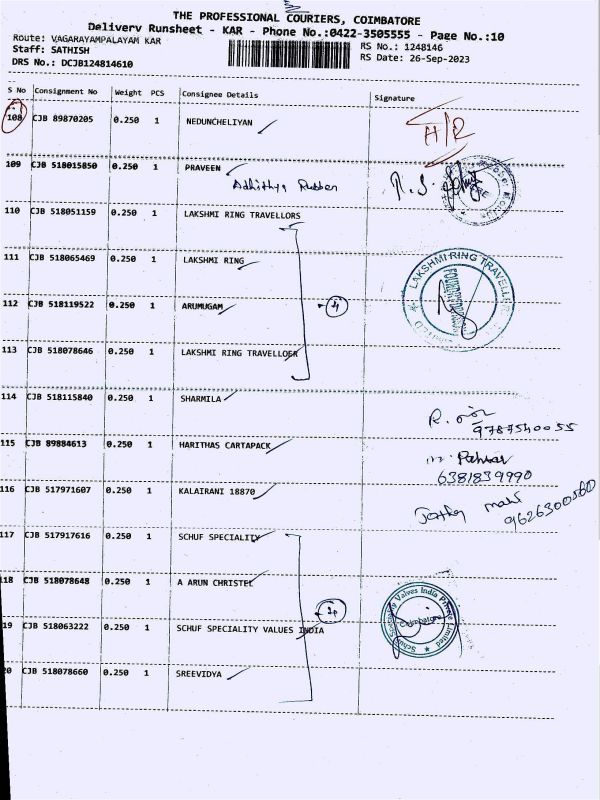 THE PROFESSIONAL COURIERS, COIMBATORE
Delivery Runsheet - KAR - Phone No.:0422-3505555 - Page No.:10
Route: VAGARAYAMPALAYAM KAR
RS No.: 1248146
Staff: SATHISH
RS Date: 26-Sep-2023
DRS No.: DCJB124814610
S No Consignment No Weight PCS Consignee Details Signature
108 CJB 89870205 0.250 1 NEDUNCHELIYAN
H/R
109 CJB 518015850 0.250 1 PRAVEEN
Adhithya Rubber
110 CJB 518051159 0.250 1 LAKSHMI RING TRAVELLORS
111 CJB 518065469 0.250 1 LAKSHMI RING
LAKSHMI RING TRAVELLER
112 CJB 518119522 0.250 1 ARUMUGAM
4
113 CJB 518078646 0.250 1 LAKSHMI RING TRAVELLOER
114 CJB 518115840 0.250 1 SHARMILA
9787540055
115 CJB 89884613 0.250 1 HARITHAS CARTAPACK
6381839990
116 CJB 517971607 0.250 1 KALAIRANI 18870
9626300560
117 CJB 517917616 0.250 1 SCHUF SPECIALITY
18 CJB 518078648 0.250 1 A ARUN CHRISTEL
Schuf Speciality Valves India Private Limited
Coimbatore
19 CJB 518063222 0.250 1 SCHUF SPECIALITY VALUES INDIA
20 CJB 518078660 0.250 1 SREEVIDYA